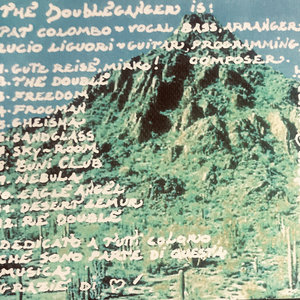 THE DOUBLEGANGER IS:
PAT COLOMBO • VOCAL, BASS, ARRANGER
LUCIO LIGUORI • GUITAR, PROGRAMMING
COMPOSER.
1. GUTE REISE, MIRKO!
2. THE DOUBLE
3. FREEDOM
4. FROGMAN
5. GHEISHA
6. SANDGLASS
7. SKY-ROOM
8. CLUB
9. NEBULA
10. EAGLE ANGEL
11. DESERT LEMUR
12. RE DOUBLE
DEDICATO A TUTTI COLORO
CHE SONO PARTE DI QUESTA
MUSICA.
GRAZIE DI ♥